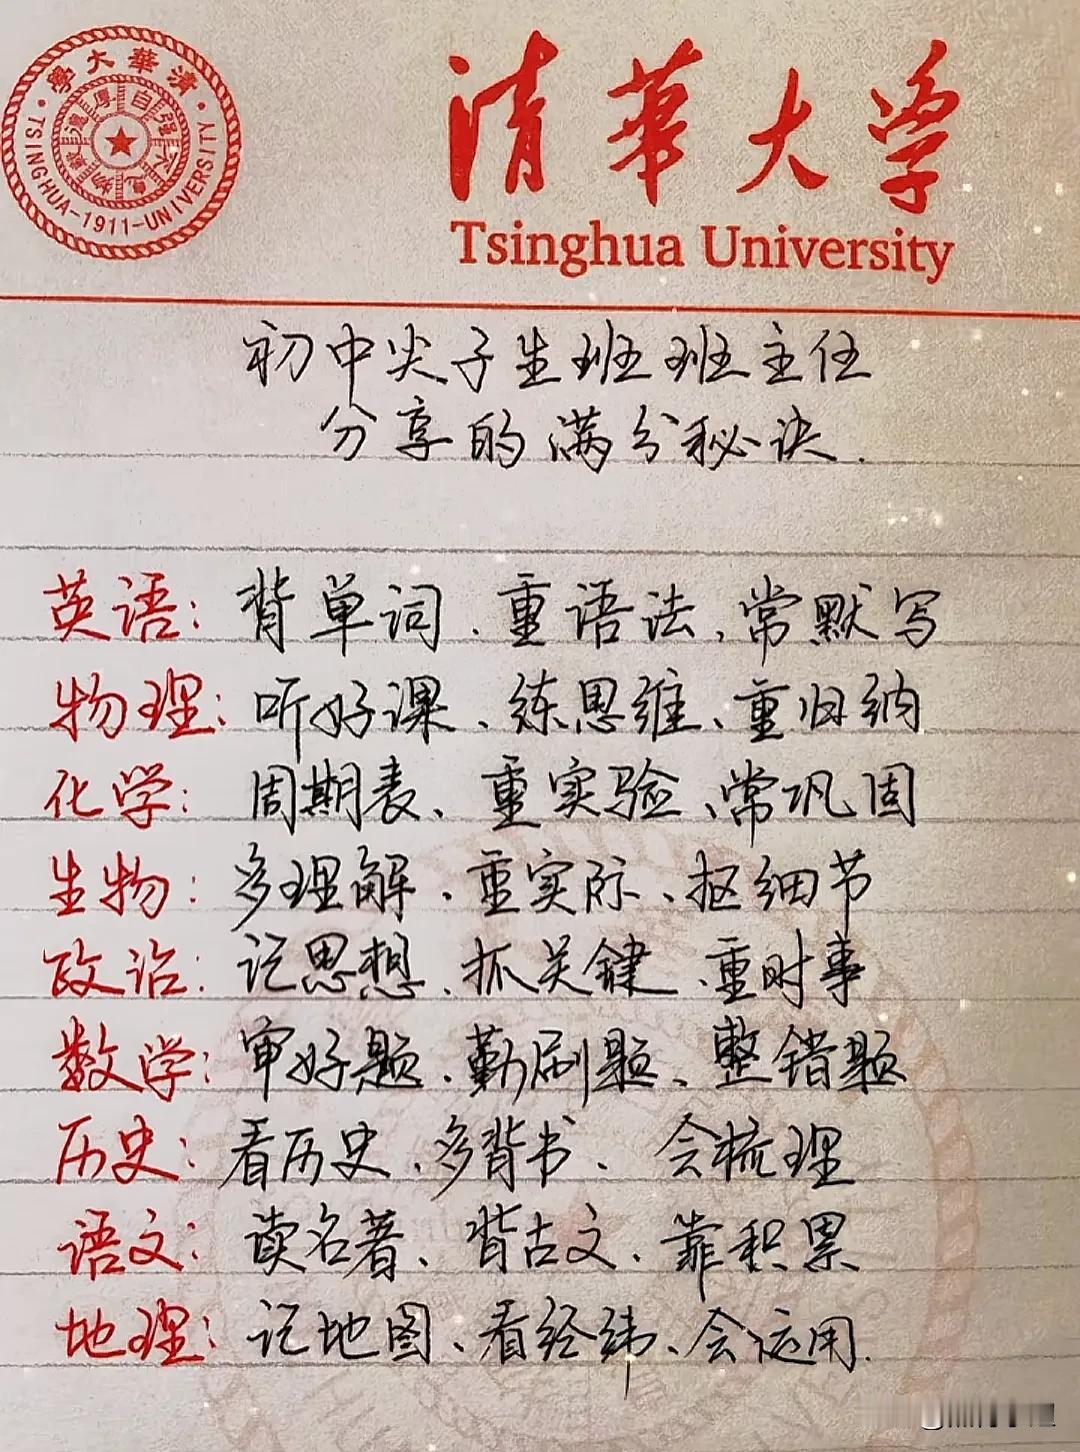 清華大學
TSINGHUA-1911-UNIVERSITY
自强不息
厚德載物
清華大学
Tsinghua University
初中尖子生班班主任
分享的满分秘诀.
英语:背单词、重语法、常默写
物理:听好课、练思维、重归纳
化学:周期表、重实验、常巩固
生物:多理解、重实际、抠细节
政治:记思想、抓关键、重时事
数学:审好题、勤刷题、整错题
历史:看历史、多背书、会梳理
语文:读名著、背古文、靠积累
地理:记地图、看经纬、会运用.